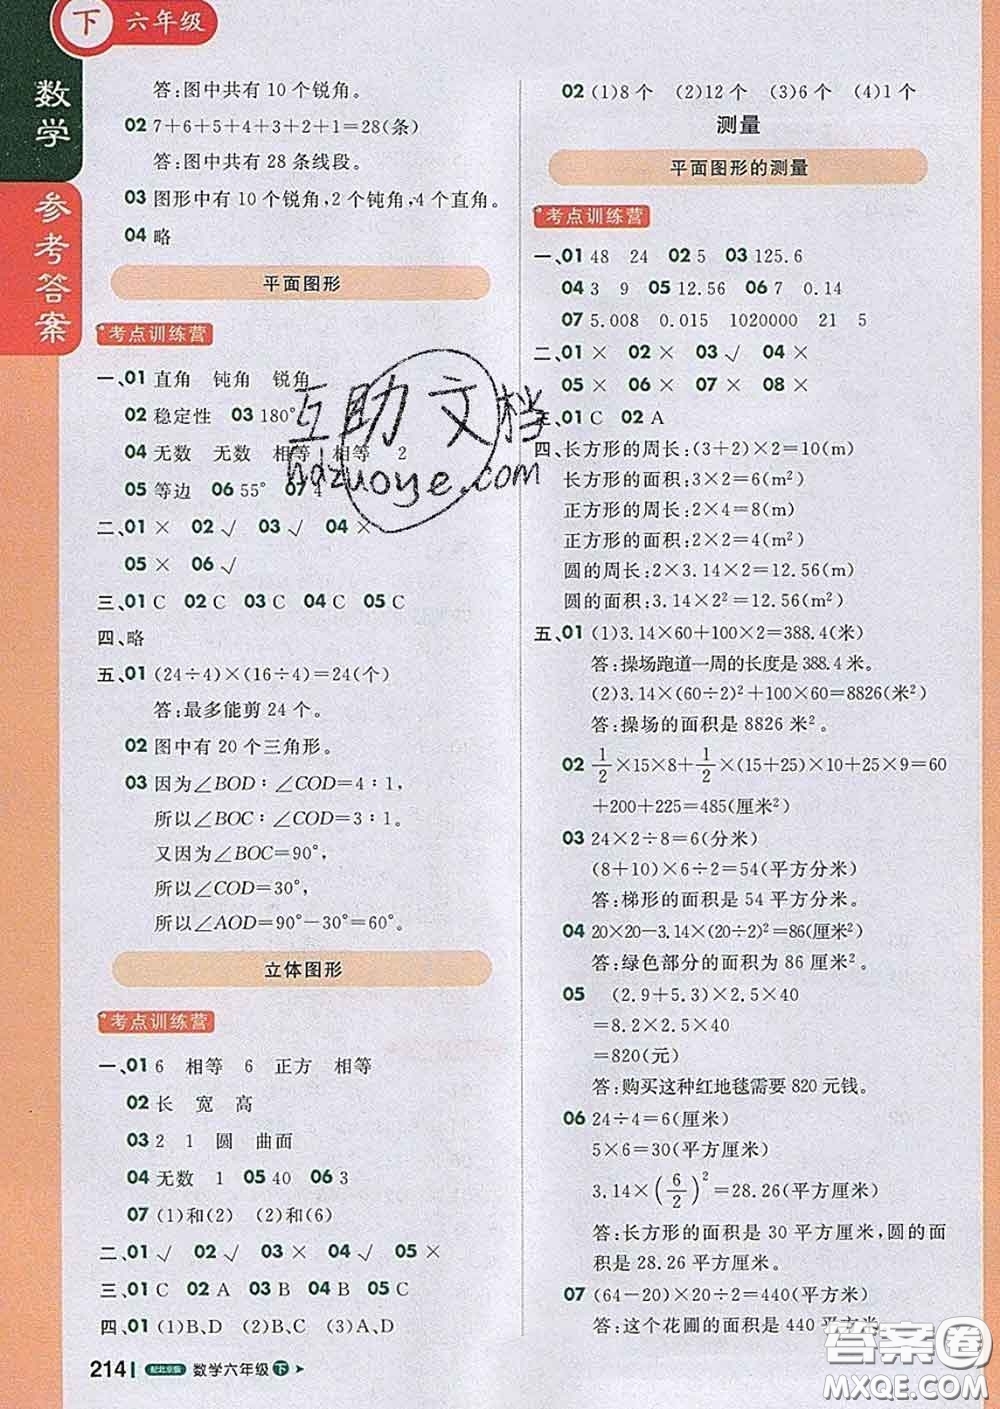 下 六年级
数学
参考答案
答:图中共有 10 个锐角。
02 7+6+5+4+3+2+1=28(条)
答:图中共有 28 条线段。
03 图形中有 10 个锐角,2 个钝角,4 个直角。
04 略
平面图形
考点训练营
一、01 直角 钝角 锐角
02 稳定性 03 180°
04 无数 无数 相等 相等 2
05 等边 06 55° 07 4
二、01 × 02 √ 03 √ 04 ×
05 × 06 √
三、01 C 02 C 03 C 04 C 05 C
四、略
五、01 (24÷4)×(16÷4)=24(个)
答:最多能剪 24 个。
02 图中有 20 个三角形。
03 因为∠BOD∶∠COD=4∶1,
所以∠BOC∶∠COD=3∶1。
又因为∠BOC=90°,
所以∠COD=30°,
所以∠AOD=90°-30°=60°。
立体图形
考点训练营
一、01 6 相等 6 正方 相等
02 长 宽 高
03 2 1 圆 曲面
04 无数 1 05 40 06 3
07 (1)和(2) (2)和(6)
二、01 √ 02 √ 03 × 04 √ 05 ×
三、01 C 02 A 03 B 04 B
四、01 (1)B,D (2)B,C (3)A,D
214 配北京版 数学六年级 下
02 (1)8 个 (2)12 个 (3)6 个 (4)1 个
测量
平面图形的测量
考点训练营
一、01 48 24 02 5 03 125.6
04 3 9 05 12.56 06 7 0.14
07 5.008 0.015 1020000 21 5
二、01 × 02 × 03 √ 04 ×
05 × 06 × 07 × 08 ×
01 C 02 A
四、长方形的周长:(3+2)×2=10(m)
长方形的面积:3×2=6(m²)
正方形的周长:2×4=8(m)
正方形的面积:2×2=4(m²)
圆的周长:2×3.14×2=12.56(m)
圆的面积:3.14×2²=12.56(m²)
五、01 (1)3.14×60+100×2=388.4(米)
答:操场跑道一周的长度是 388.4 米。
(2)3.14×(60÷2)²+100×60=8826(米²)
答:操场的面积是 8826 米²。
02 1/2×15×8+1/2×(15+25)×10+25×9=60
+200+225=485(厘米²)
03 24×2÷8=6(分米)
(8+10)×6÷2=54(平方分米)
答:梯形的面积是 54 平方分米。
04 20×20-3.14×(20÷2)²=86(厘米²)
答:绿色部分的面积为 86 厘米²。
05 (2.9+5.3)×2.5×40
=8.2×2.5×40
=820(元)
答:购买这种红地毯需要 820 元钱。
06 24÷4=6(厘米)
5×6=30(平方厘米)
3.14×(6/2)²=28.26(平方厘米)
答:长方形的面积是 30 平方厘米,圆的面
积是 28.26 平方厘米。
07 (64-20)×20÷2=440(平方厘米)
答:这个花圃的面积是 440 平方米
互助文档
hdzuoye.com
答案圈
MXQE.COM